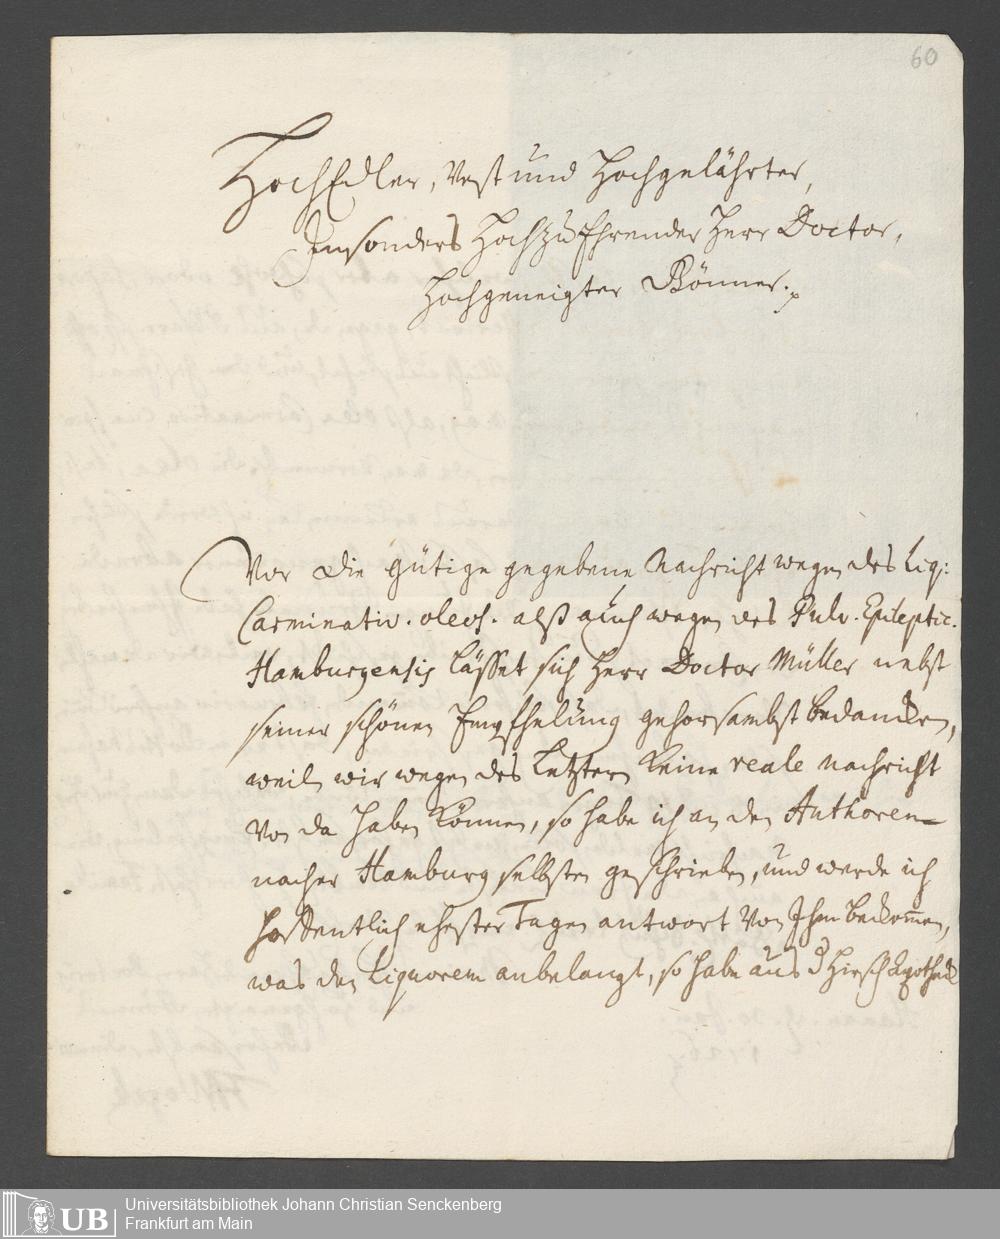 60
HochEdler, Vest und Hochgelährter,
Insonders HochzuEhrender Herr Doctor,
Hochgeneigter Gönner.
Vor die gütige gegebene Nachricht wegen des Liq:
Carminativ. oleos. alß auch wegen des Pulv. Epileptic.
Hamburgensis lässet sich Herr Doctor Müller nebst
seiner schönen Empfhelung gehorsambst bedancken,
weil wir wegen des Letztern Keine reale Nachricht
von da haben können, so habe ich an den Authoren
nacher Hamburg selbsten geschrieben, und werde ich
hoffentlich ehester Tagen antwort von Ihm bekom̄en,
was den Liquorem anbelangt, so habe aus d Hirsch Apotheck
UB
Universitätsbibliothek Johann Christian Senckenberg
Frankfurt am Main